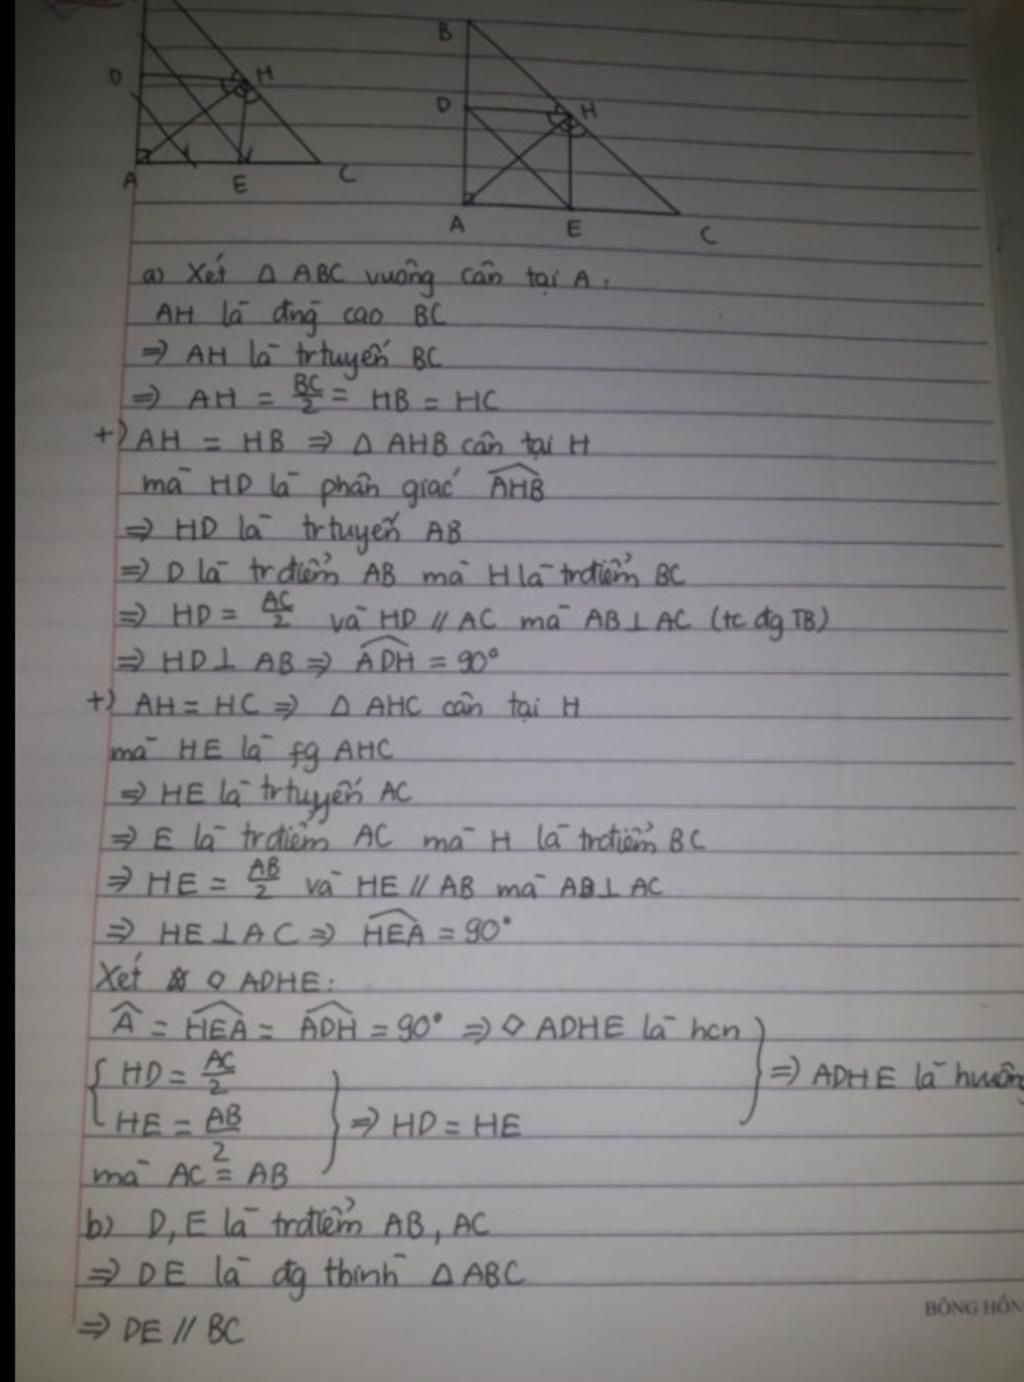 D H
A E C
B
D H
A E C
a) Xét Δ ABC vuông cân tại A.
AH là đng cao BC
=> AH là trtuyến BC
=> AH = BC/2 = HB = HC
+) AH = HB => Δ AHB cân tại H
mà HD là phân giác AHB
=> HD là trtuyến AB
=> D là trđiểm AB mà H là trđiểm BC
=> HD = AC/2 và HD // AC mà AB ⊥ AC (tc đg TB)
=> HD ⊥ AB => ADH = 90°
+) AH = HC => Δ AHC cân tại H
mà HE là fg AHC
=> HE là trtuyến AC
=> E là trđiểm AC mà H là trđiểm BC
=> HE = AB/2 và HE // AB mà AB ⊥ AC
=> HE ⊥ AC => HEA = 90°
Xét ◇ ADHE:
A = HEA = ADH = 90° => ◇ ADHE là hcn
HD = AC/2
=> ADHE là hvuông
HE = AB/2
=> HD = HE
mà AC = AB
b) D, E là trđiểm AB, AC
=> DE là đg tbình Δ ABC
=> DE // BC
BÔNG HỒN